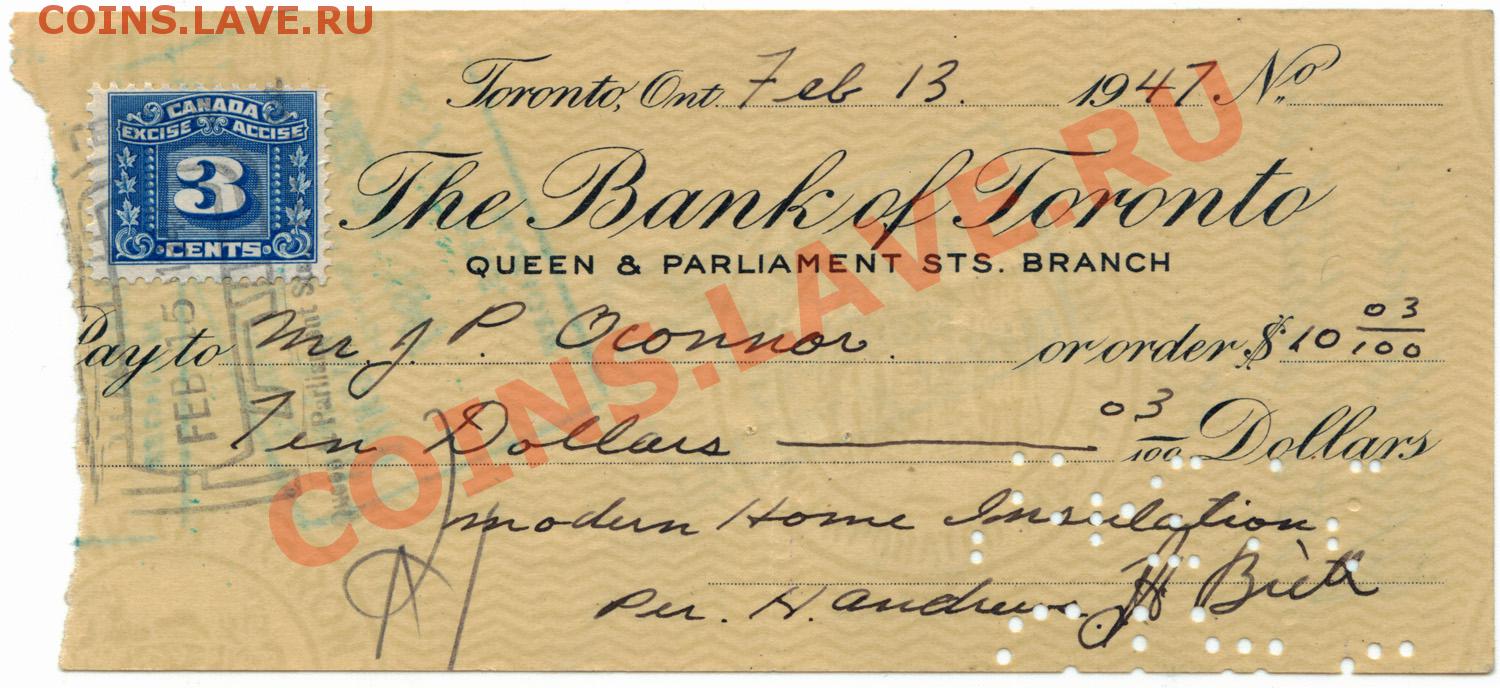 COINS.LAVE.RU
Toronto, Ont. Feb 13. 1947. No
CANADA
EXCISE ACCISE
3
CENTS
The Bank of Toronto
QUEEN & PARLIAMENT STS. BRANCH
Pay to Mr. J. P. Oconnor. or order $ 10 03/100
Ten Dollars 03/100 Dollars
FEB 15
modern Home Insulation
Per. H. Andrews
COINS.LAVE.RU